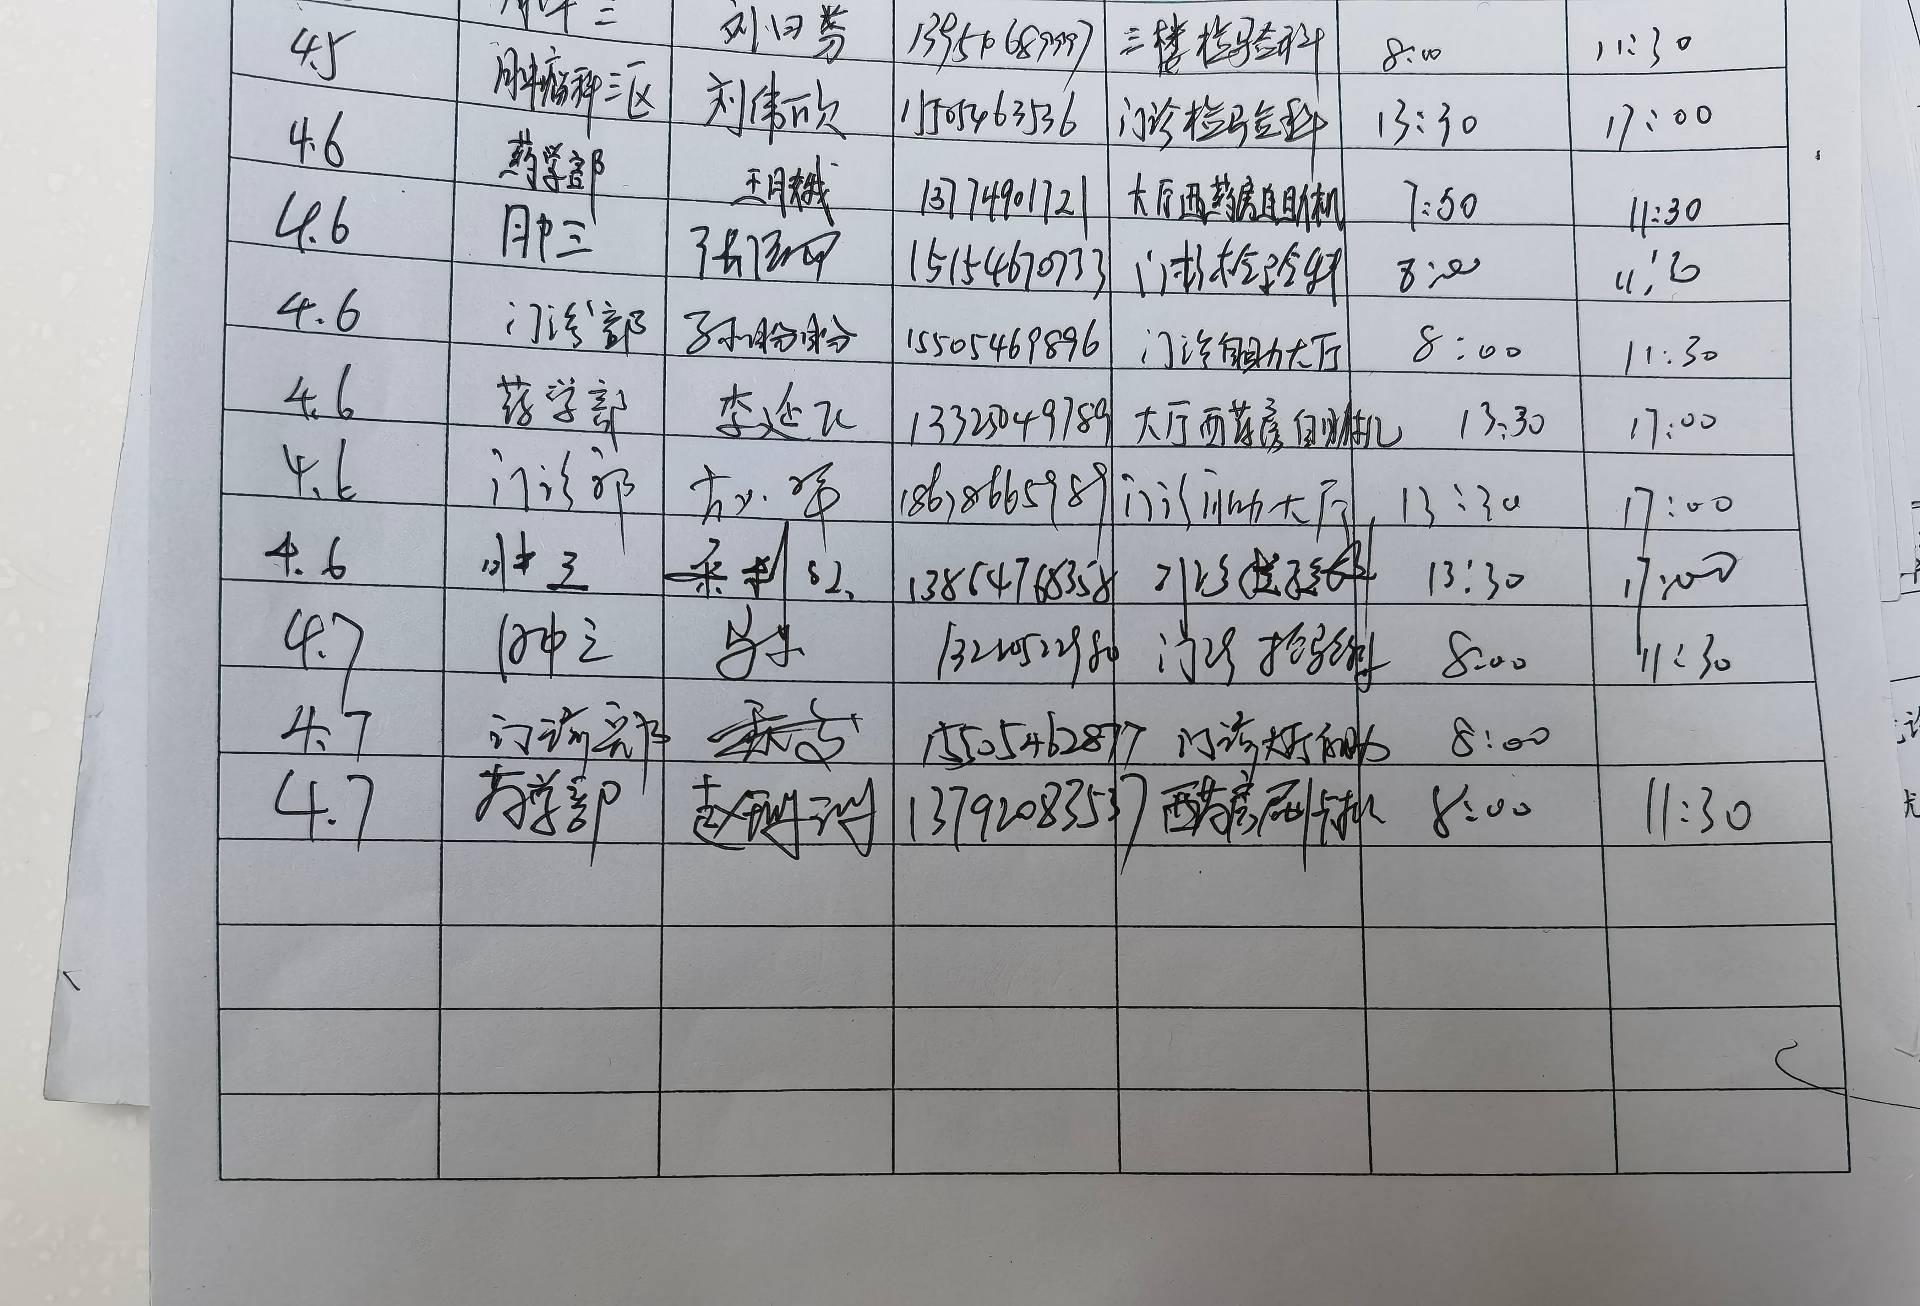 4.5 肿三 刘日芬 三楼检验科 8:00 11:30
肿瘤科三区 刘伟欣 15505463536 门诊检验科 13:30 17:00
4.6 药学部 王月娥 13774901721 大厅西药房自助机 7:50 11:30
4.6 肿三 15154670733 门诊检验科 8:00 11:30
4.6 门诊部 孙盼盼 15505469896 门诊自助大厅 8:00 11:30
4.6 药学部 李延飞 大厅西药房自助机 13:30 17:00
4.6 门诊部 18678665989 门诊自助大厅 13:30 17:00
4.6 肿三 13864768358 门诊检验科 13:30 17:00
4.7 肿三 门诊检验科 8:00 11:30
4.7 门诊部 15505462877 门诊大厅自助 8:00
4.7 药学部 赵珊珊 13792083537 西药房刷卡机 8:00 11:30